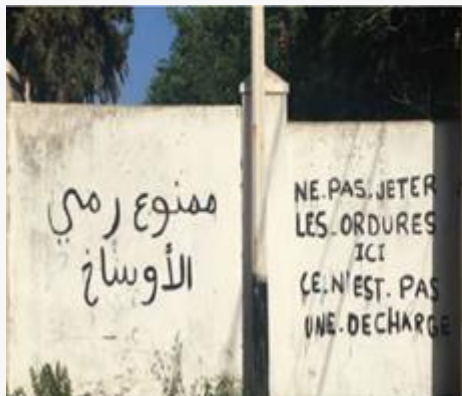 ممنوع رمي
الأوساخ
NE.PAS.JETER
LES.ORDURES
ICI
CE.N'EST.PAS
UNE.DECHARGE